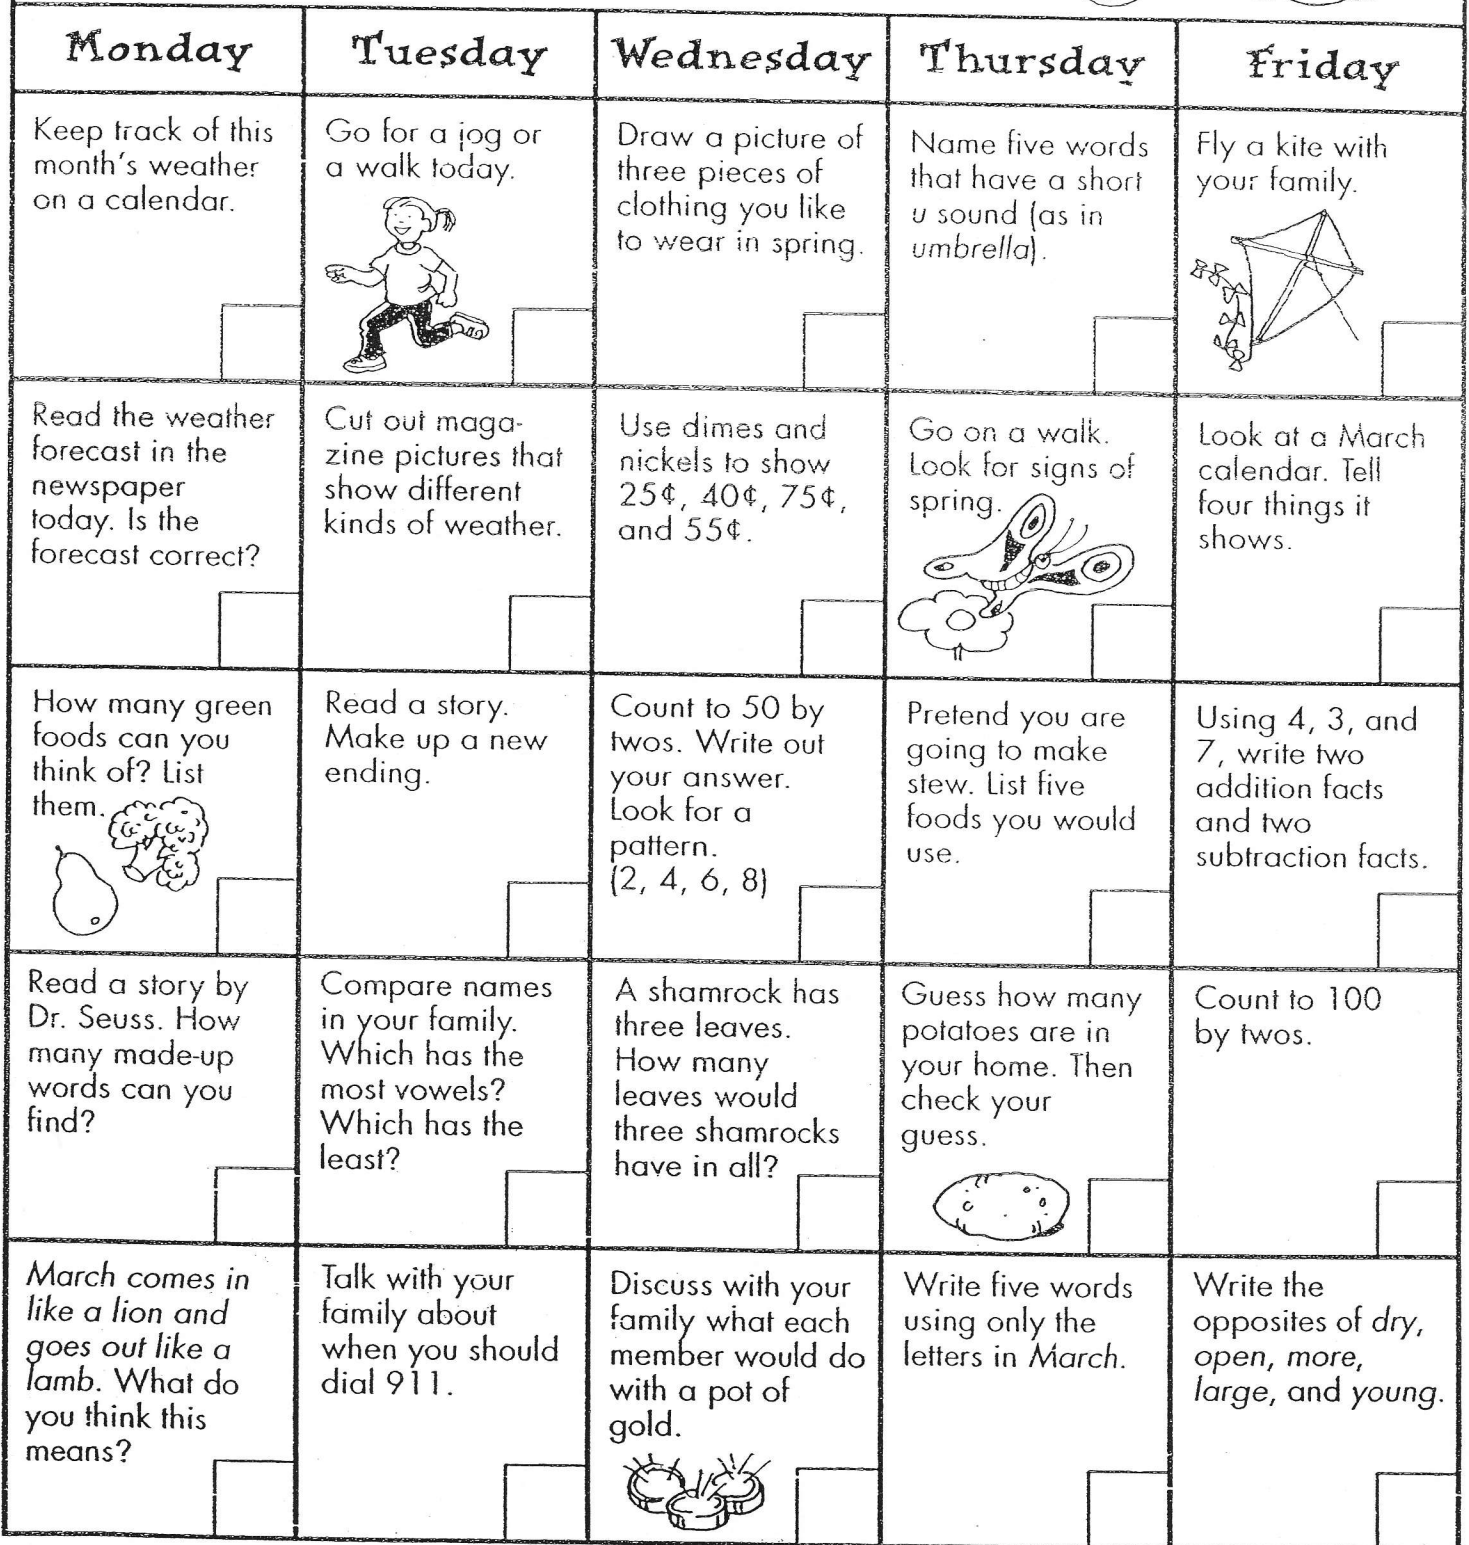 Monday
Tuesday
Wednesday
Thursday
Friday
Keep track of this
month's weather
on a calendar.
Go for a jog or
a walk today.
Draw a picture of
three pieces of
clothing you like
to wear in spring.
Name five words
that have a short
u sound (as in
umbrella).
Fly a kite with
your family.
Read the weather
forecast in the
newspaper
today. Is the
forecast correct?
Cut out maga-
zine pictures that
show different
kinds of weather.
Use dimes and
nickels to show
25¢, 40¢, 75¢,
and 55¢.
Go on a walk.
Look for signs of
spring.
Look at a March
calendar. Tell
four things it
shows.
How many green
foods can you
think of? List
them.
Read a story.
Make up a new
ending.
Count to 50 by
twos. Write out
your answer.
Look for a
pattern.
(2, 4, 6, 8)
Pretend you are
going to make
stew. List five
foods you would
use.
Using 4, 3, and
7, write two
addition facts
and two
subtraction facts.
Read a story by
Dr. Seuss. How
many made-up
words can you
find?
Compare names
in your family.
Which has the
most vowels?
Which has the
least?
A shamrock has
three leaves.
How many
leaves would
three shamrocks
have in all?
Guess how many
potatoes are in
your home. Then
check your
guess.
Count to 100
by twos.
March comes in
like a lion and
goes out like a
lamb. What do
you think this
means?
Talk with your
family about
when you should
dial 911.
Discuss with your
family what each
member would do
with a pot of
gold.
Write five words
using only the
letters in March.
Write the
opposites of dry,
open, more,
large, and young.